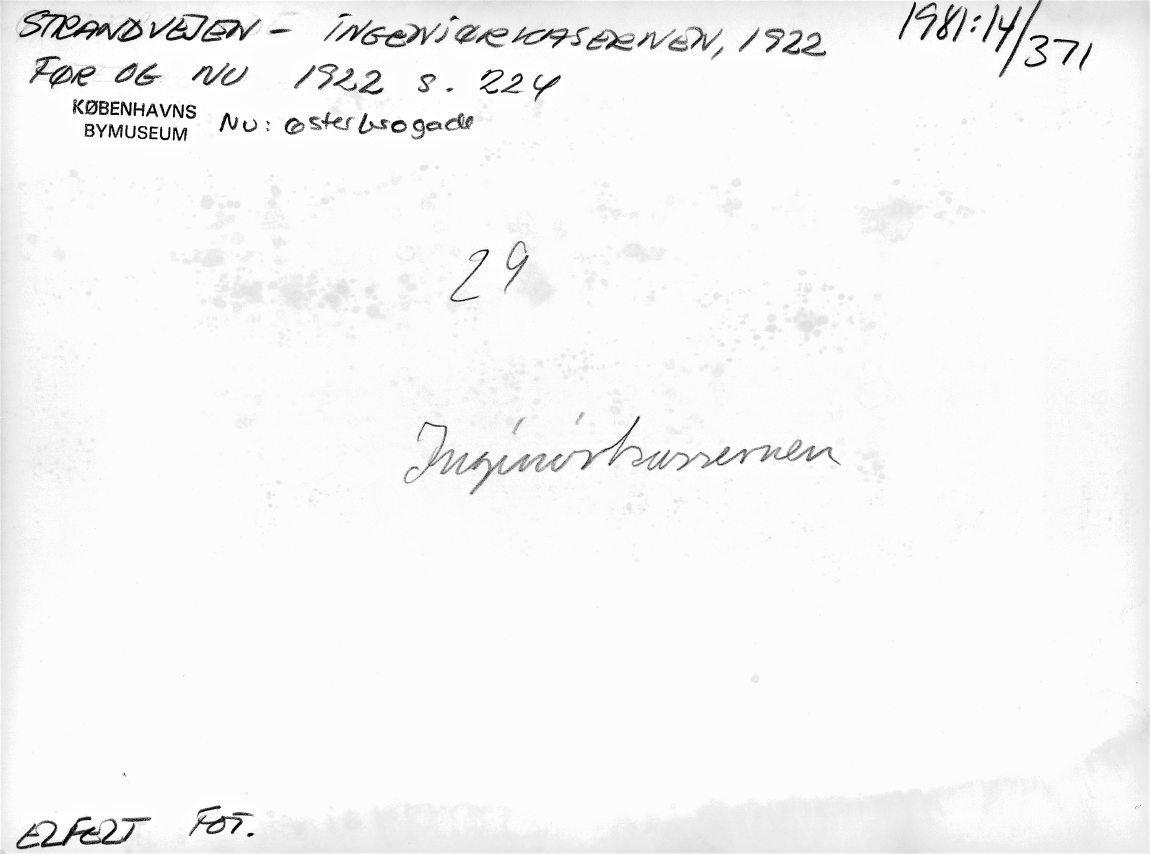 STRANDVEJEN - INGENIØRKASERNEN, 1922
1981:14/371
FØR OG NU 1922 s. 224
KØBENHAVNS
BYMUSEUM
Nu: Østerbrogade
29
Ingeniørkasernen
ELFELT FOT.